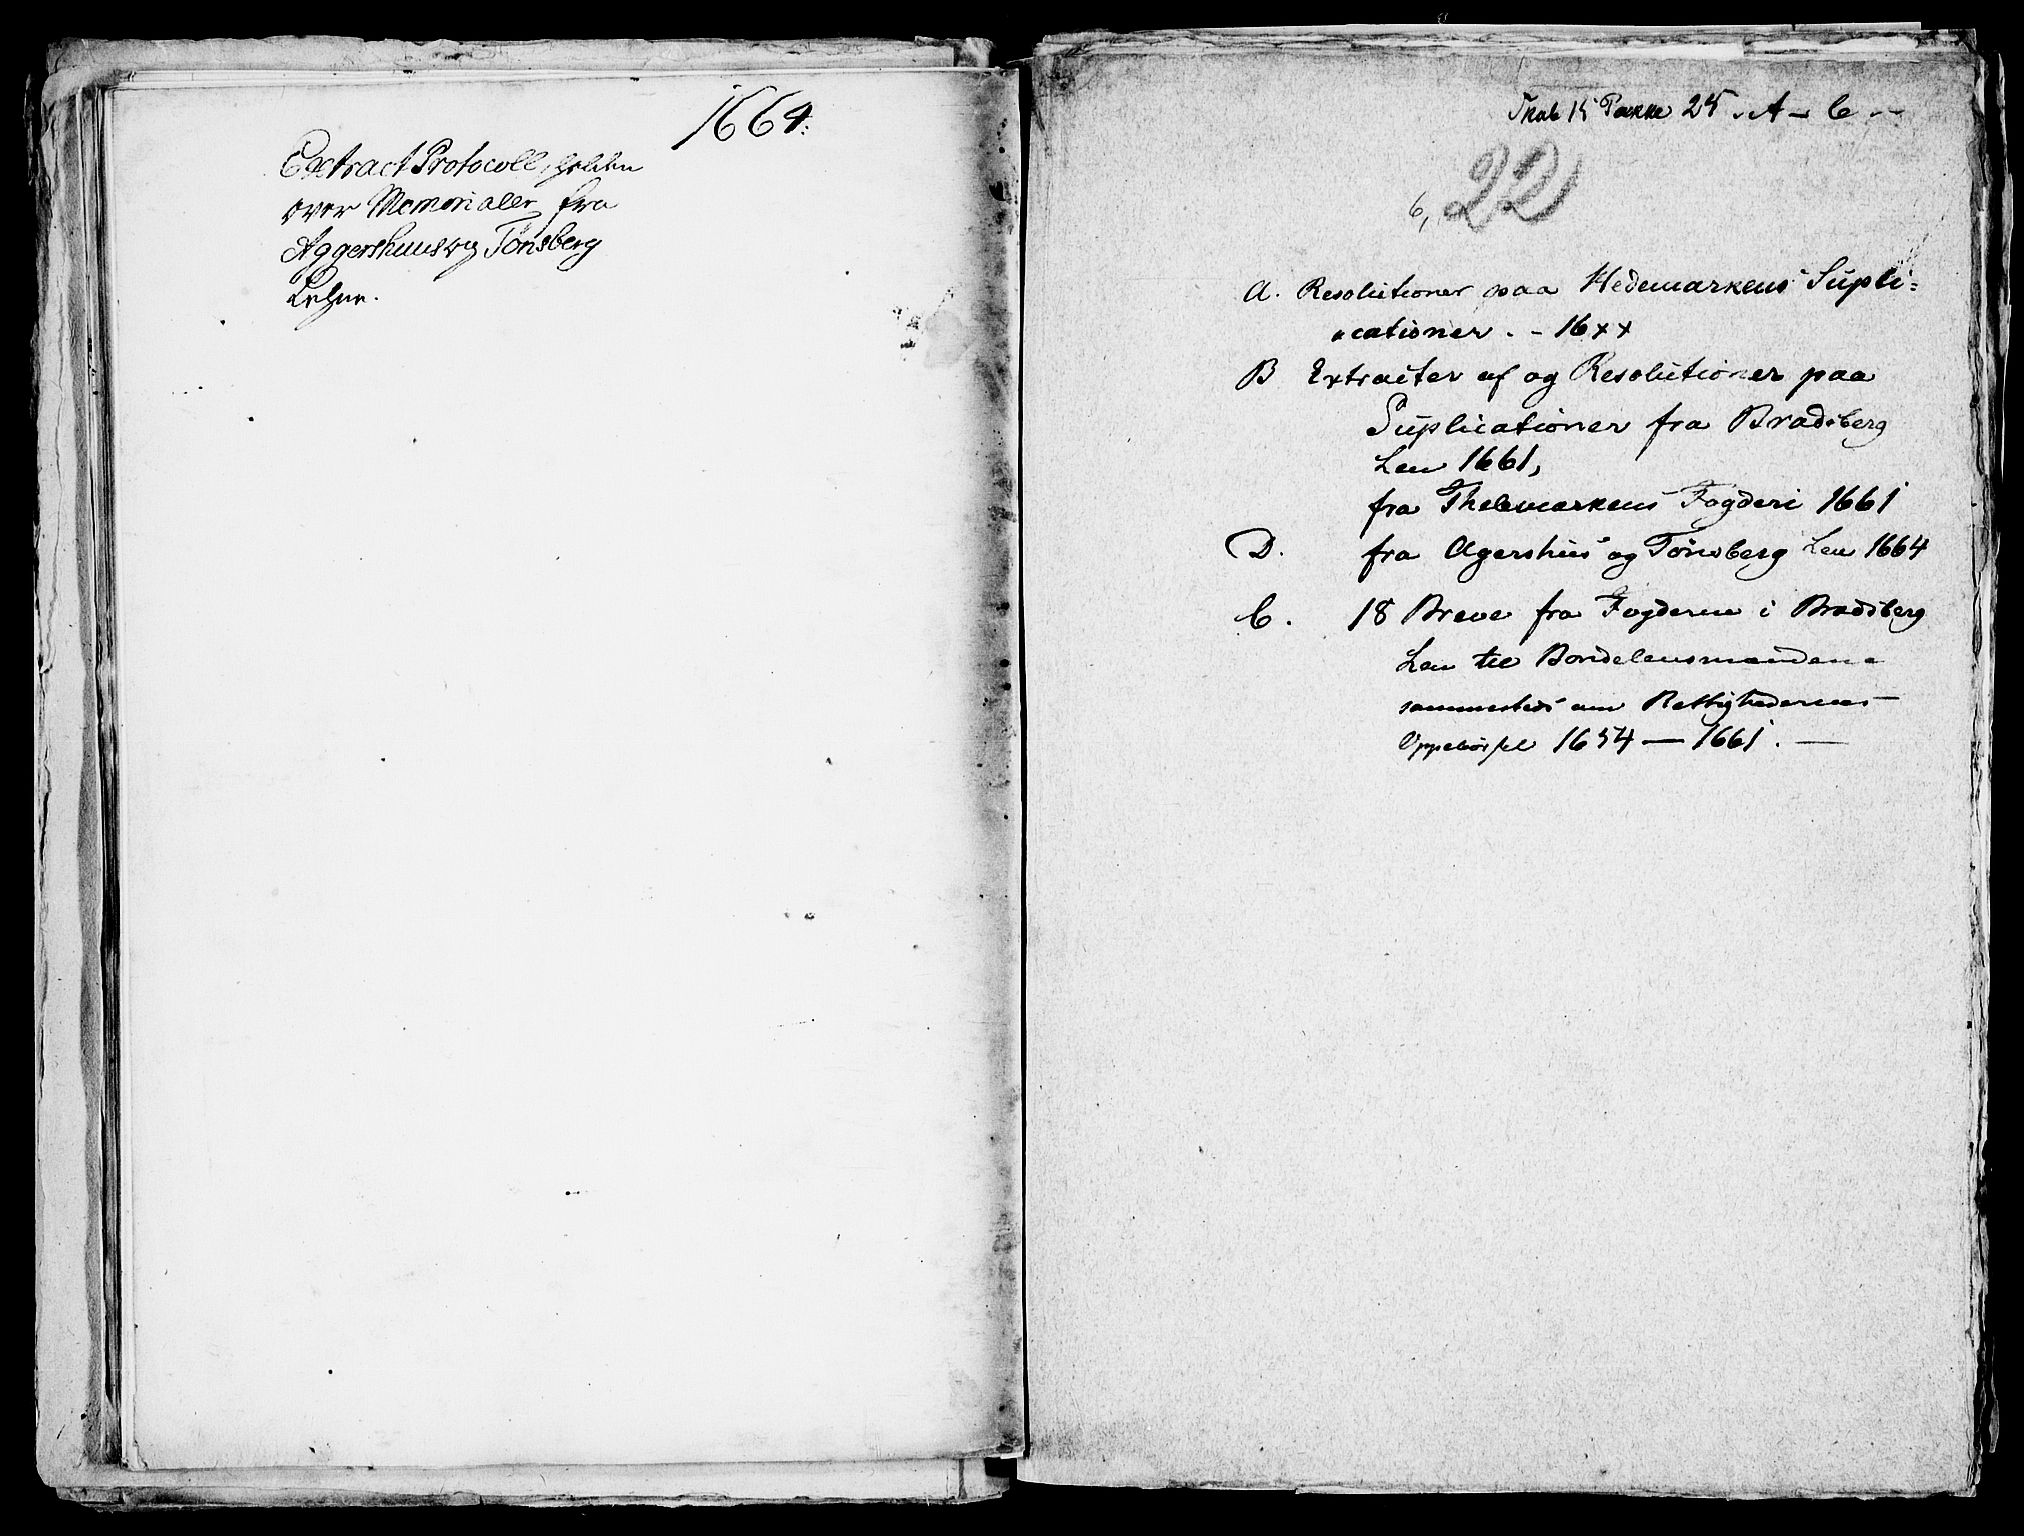 1664.
Extract Protocoll, holden
over Memorialer fra
Aggershuus og Tønsberg
Lehne.
Skab 15 Pakke 25. A – C –
6, 22
A. Resolutioner paa Hedemarkens Supli-
cationer. – 16xx
B Extracter af og Resolutioner paa
Suplicationer fra Bradsberg
Len 1661,
fra Thelemarkens Fogderi 1661
D. fra Agershus og Tønsberg Len 1664
C. 18 Breve fra Fogderne i Bradsberg
Len til Bondelensmændene
sammesteds om Rettighedernes
Oppebørsel 1654 — 1661. —